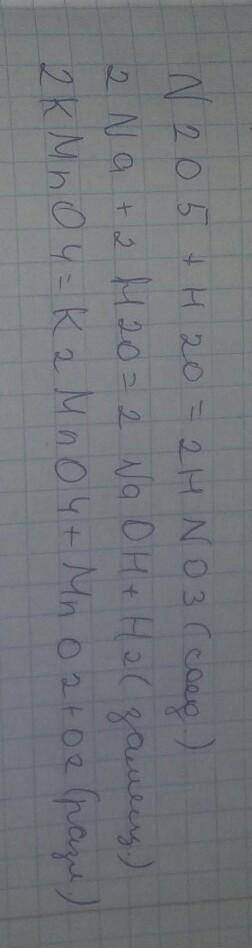 N2O5 + H2O = 2HNO3 (соед.)
2Na + 2H2O = 2NaOH + H2 (замещ.)
2KMnO4 = K2MnO4 + MnO2 + O2 (разл.)